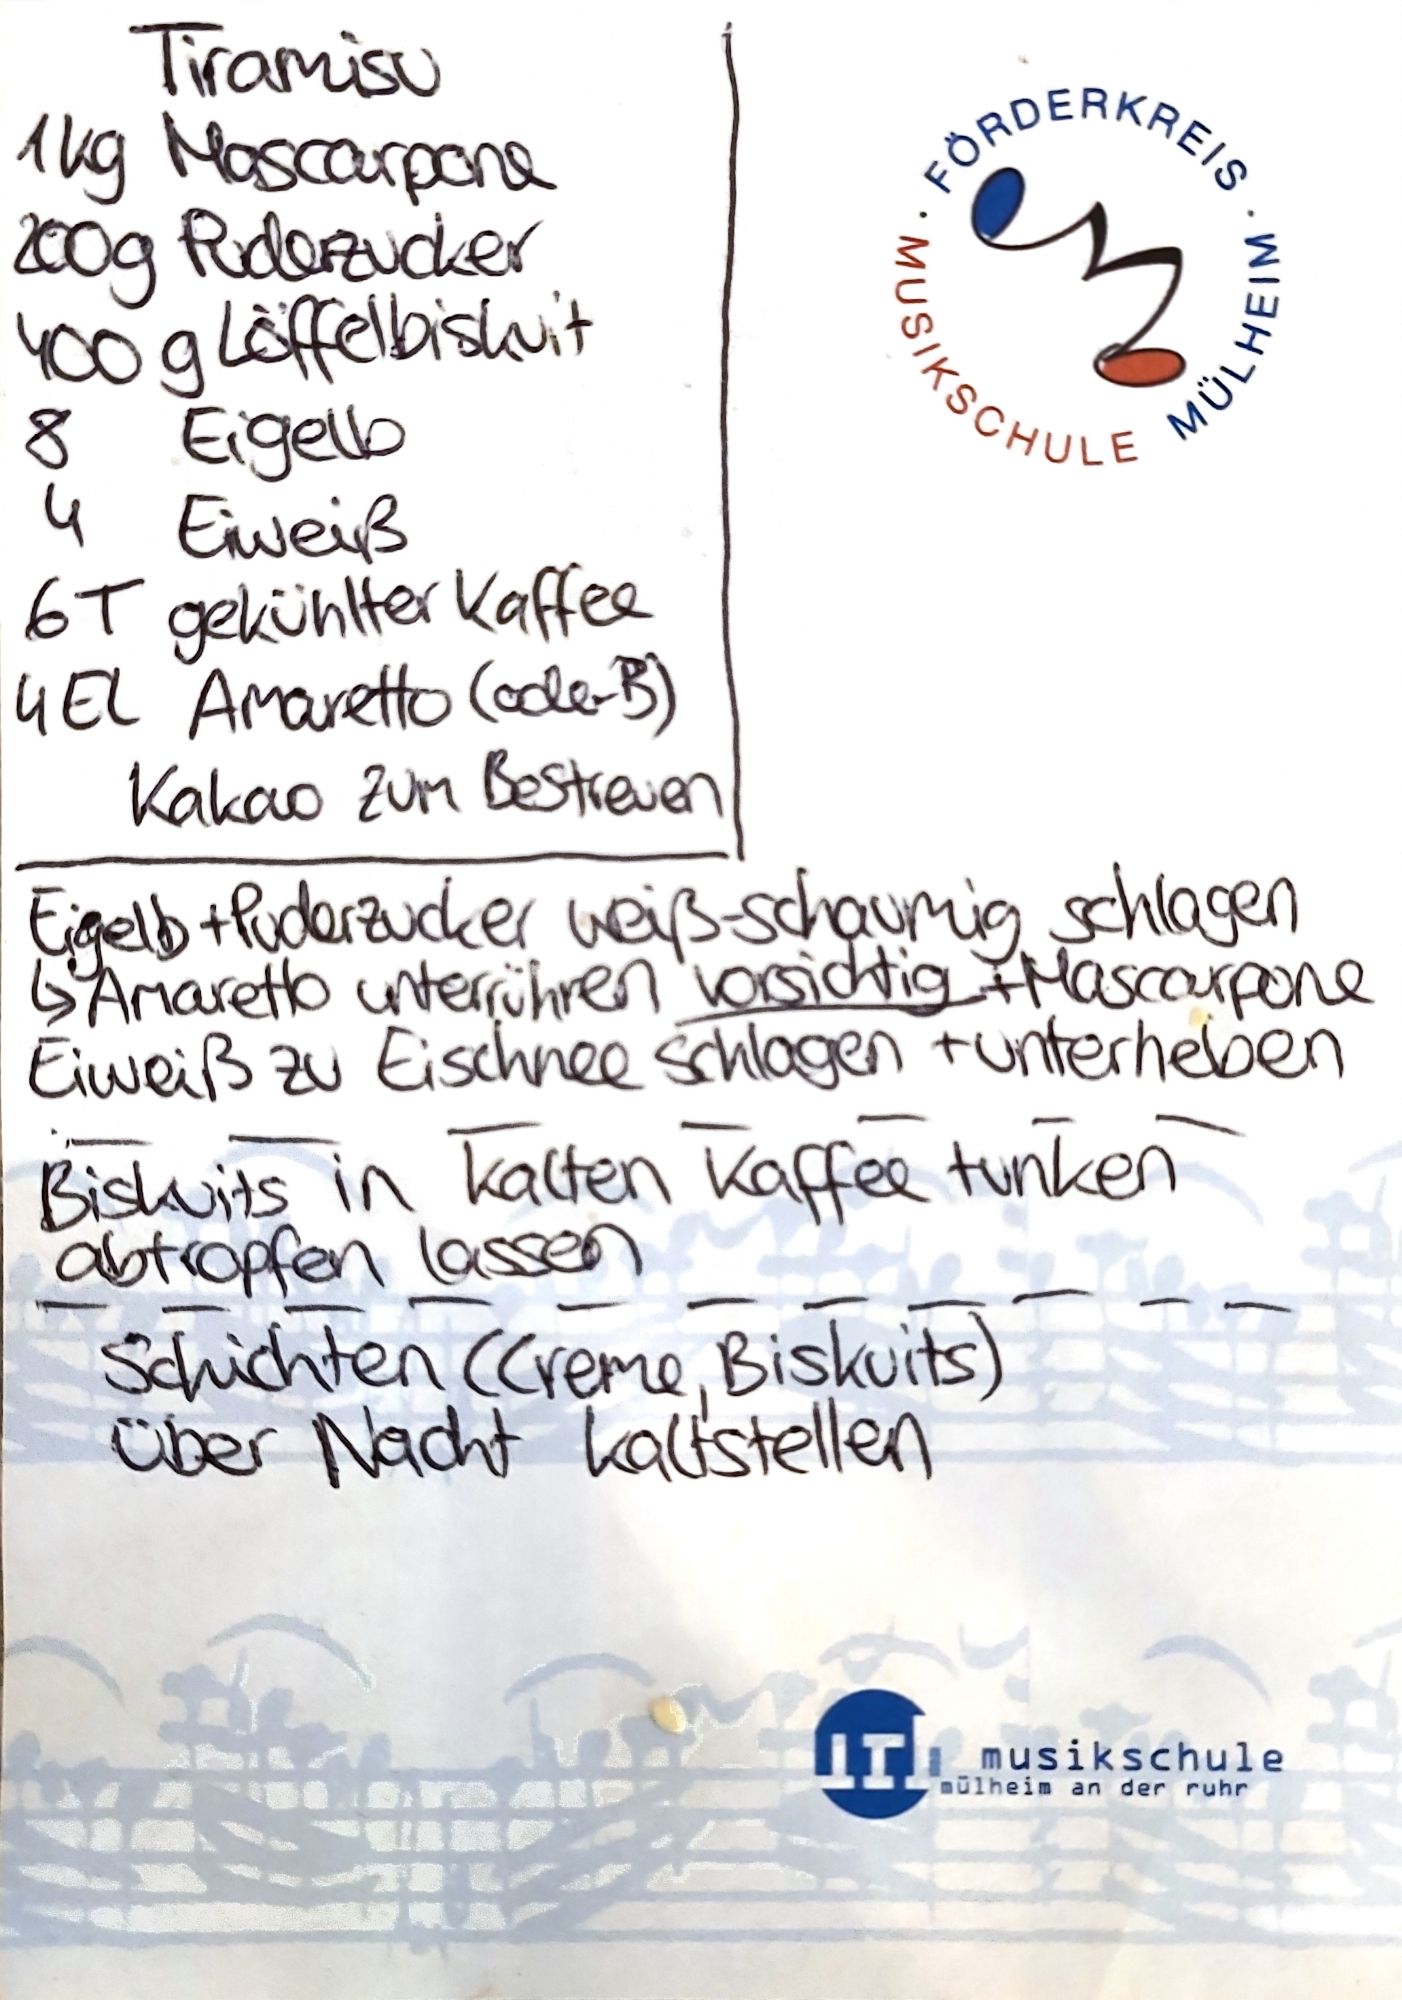 Tiramisu
1kg Mascarpone
200g Puderzucker
400 g Löffelbiskuit
8 Eigelb
4 Eiweiß
6T gekühlter Kaffee
4EL Amaretto (oder B)
Kakao zum Bestreuen
FÖRDERKREIS · MUSIKSCHULE MÜLHEIM ·
Eigelb + Puderzucker weiß-schaumig schlagen
↳ Amaretto unterrühren vorsichtig + Mascarpone
Eiweiß zu Eischnee schlagen + unterheben
Biskuits in kalten Kaffee tunken
abtropfen lassen
Schichten (Creme, Biskuits)
über Nacht kaltstellen
musikschule
mülheim an der ruhr